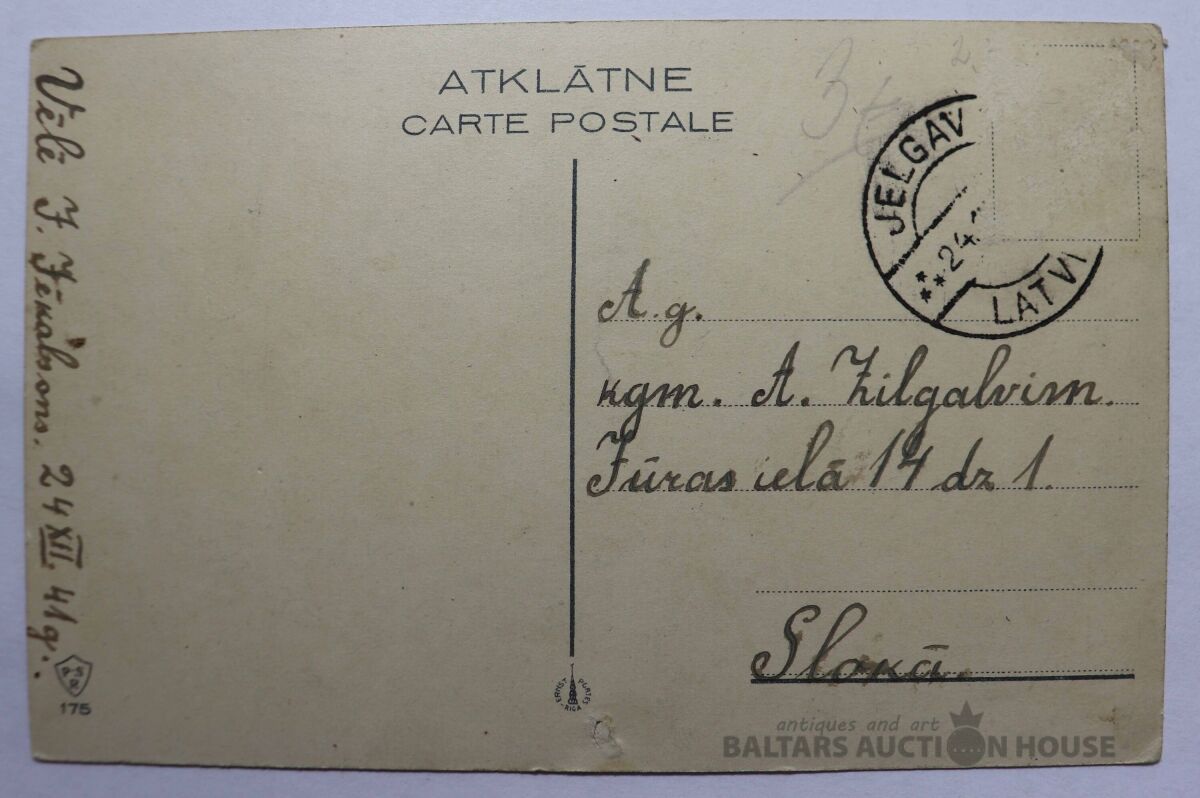 ATKLĀTNE
CARTE POSTALE
JELGAV
24.
LATVI
A. g.
kgm. A. Zilgalvim.
Jūras ielā 14 dz 1.
Slokā.
Vēlē J. Jēkabsons. 24 XII. 41 g.
PSR
175
ERNST PLATES
RIGA
antiques and art
BALTARS AUCTION HOUSE